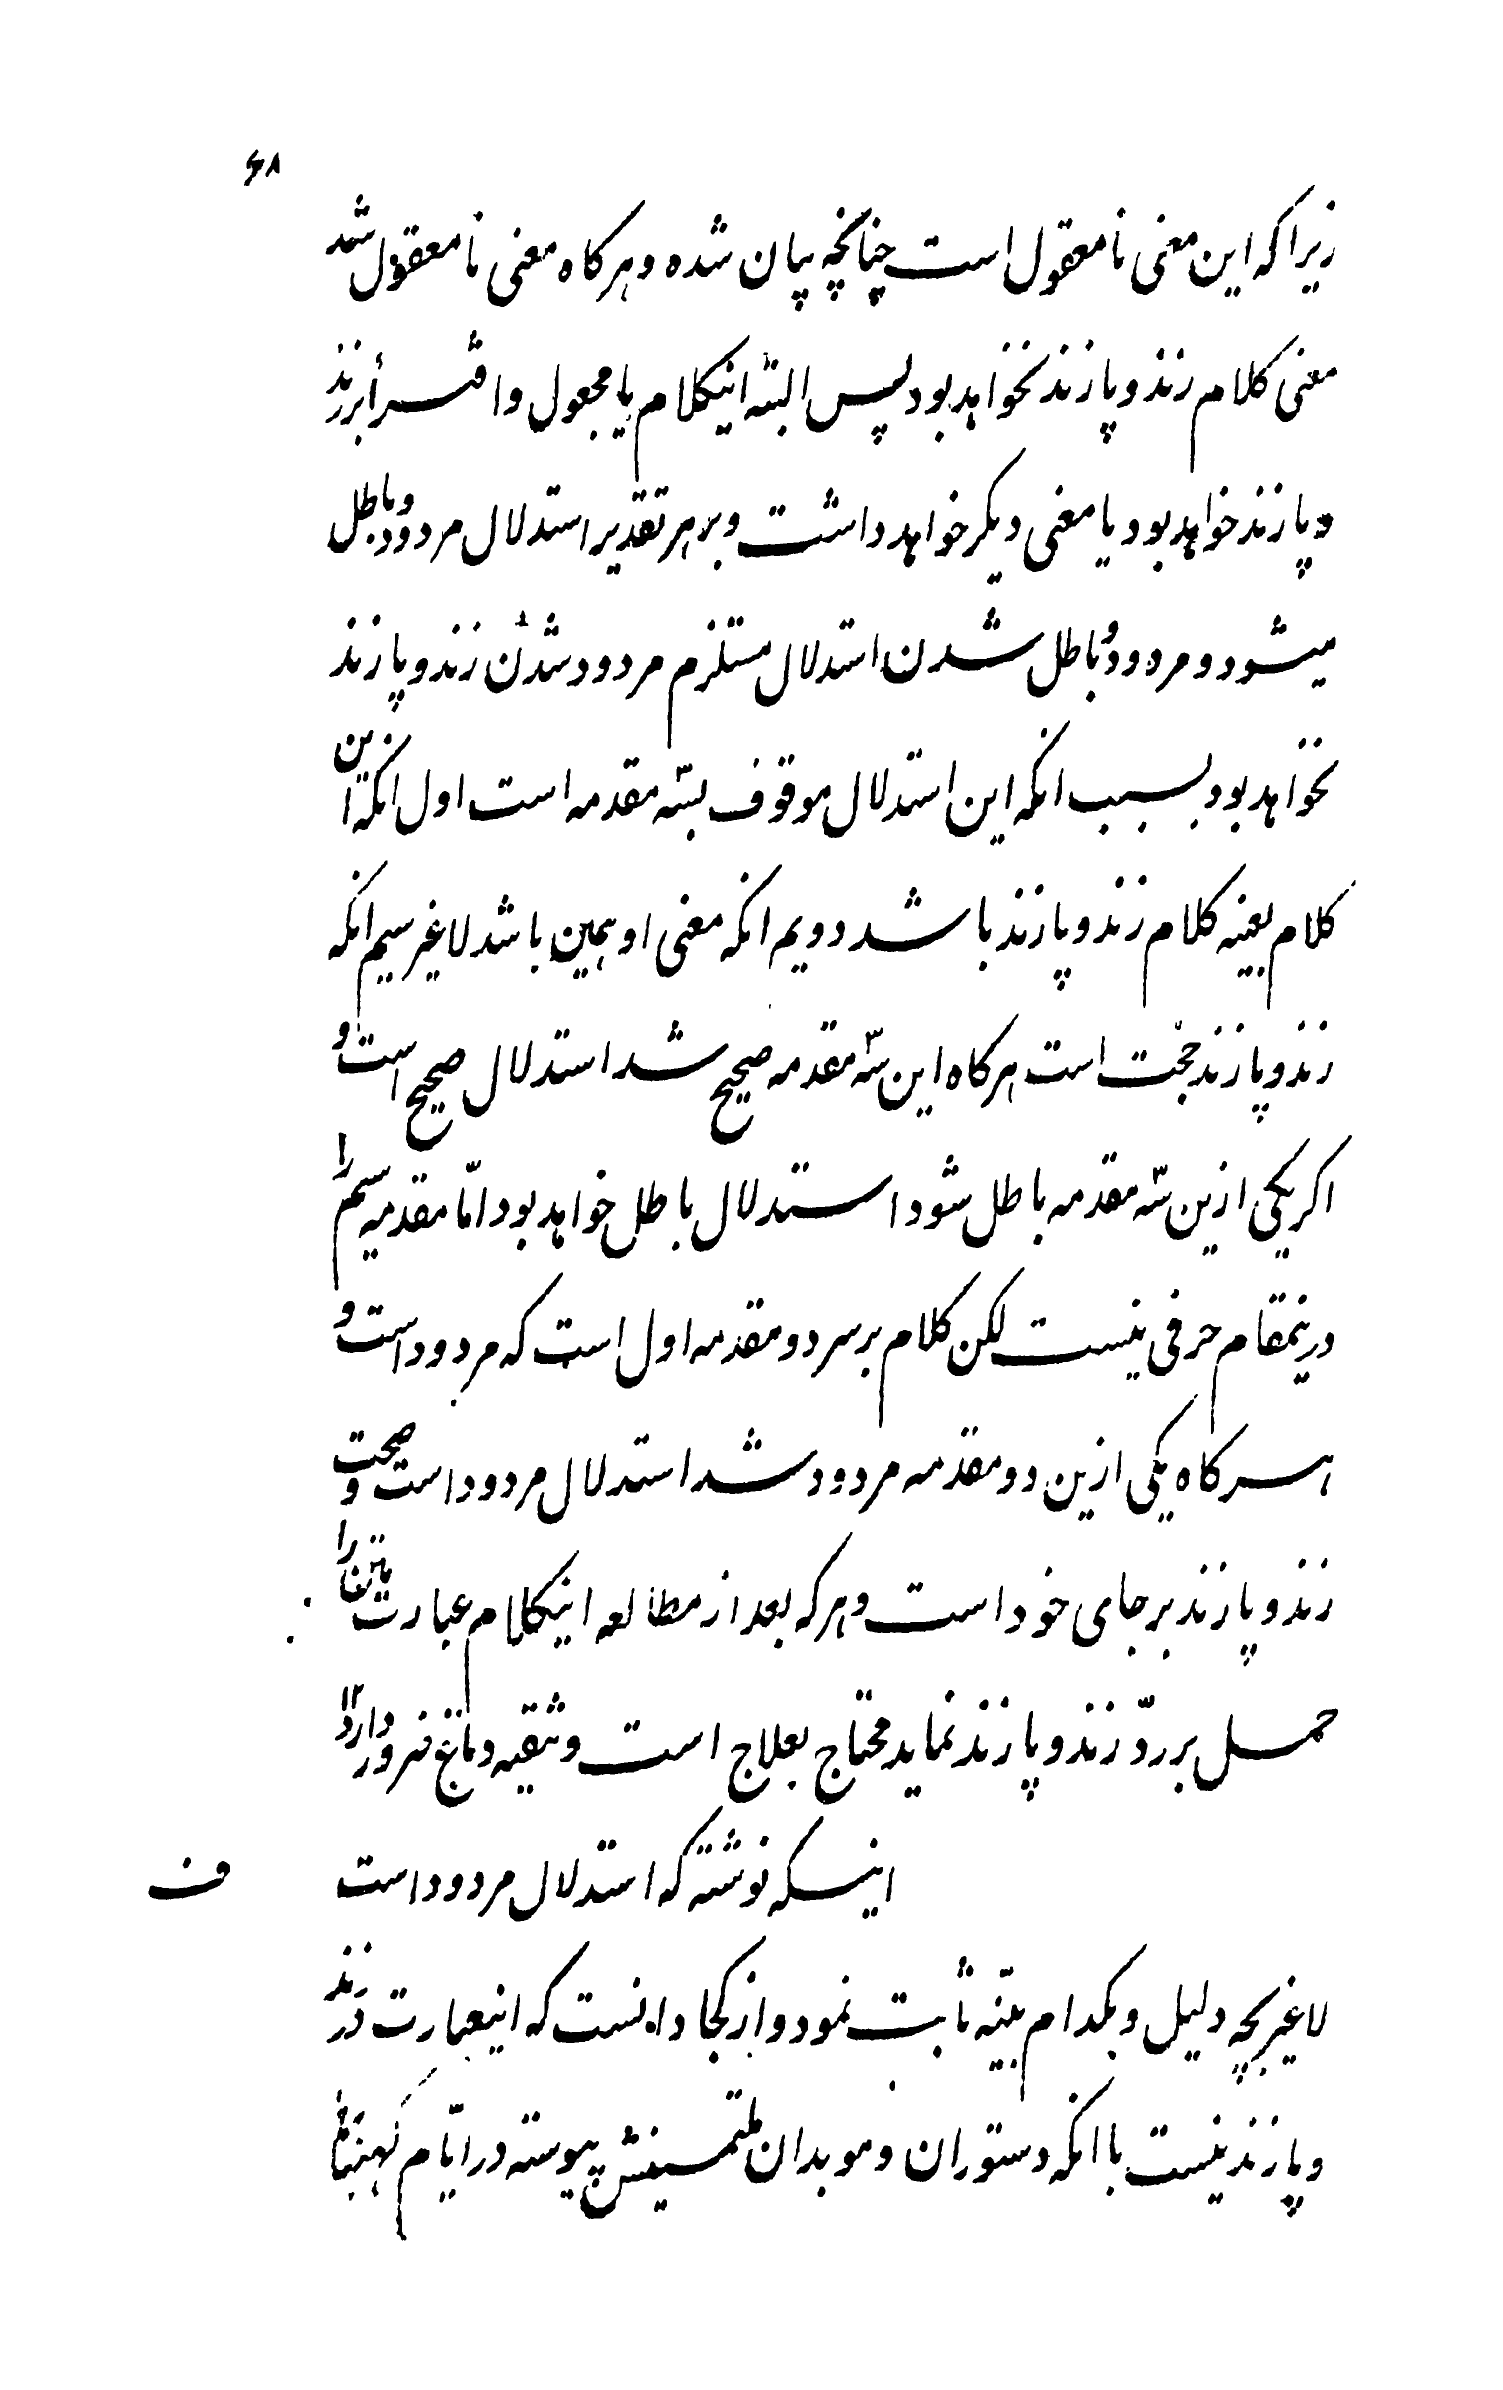 ۶۸
زیرا که این معنی نامعقول است چنانچه بیان شده و هرکاه معنی نامعقول شد
معنی کلام زند و پازند نخواهد بود پس البته اینکلام یا مجعول و افترأ بر زند
و پازند خواهد بود یا معنی دیکر خواهد داشت و بر هر تقدیر استدلال مردود و باطل
میشود و مردود و باطل شدن استدلال مستلزم مردود شدن زند و پازند
نخواهد بود بسبب انکه این استدلال موقوف بسه مقدمه است اول انکه این
کلام بعینه کلام زند و پازند باشد دویم انکه معنی او همین باشد لاغیر سیم انکه
زند و پازند حجت است هرکاه این سه مقدمه صحیح شد استدلال صحیح است و
اکر یکی ازین سه مقدمه باطل شود استدلال باطل خواهد بود امّا مقدمه سیم را
درینمقام حرفی نیست لکن کلام بر سر دو مقدمه اول است که مردود است و
هرکاه یکی ازین دو مقدمه مردود شد استدلال مردود است و صحت
زند و پازند بر جای خود است و هرکه بعد از مطالعه اینکلام عبارت را
حمل بر ردّ زند و پازند نماید محتاج بعلاج است و تنقیه دماغ ضرور دارد ۱۲
اینکه نوشته که استدلال مردود است
ف
لاغیر بچه دلیل و بکدام بیّنه ثابت نمود و از کجا دانست که اینعبارت در زند
و پازند نیست با انکه دستوران و موبدان پیوسته در ایّام